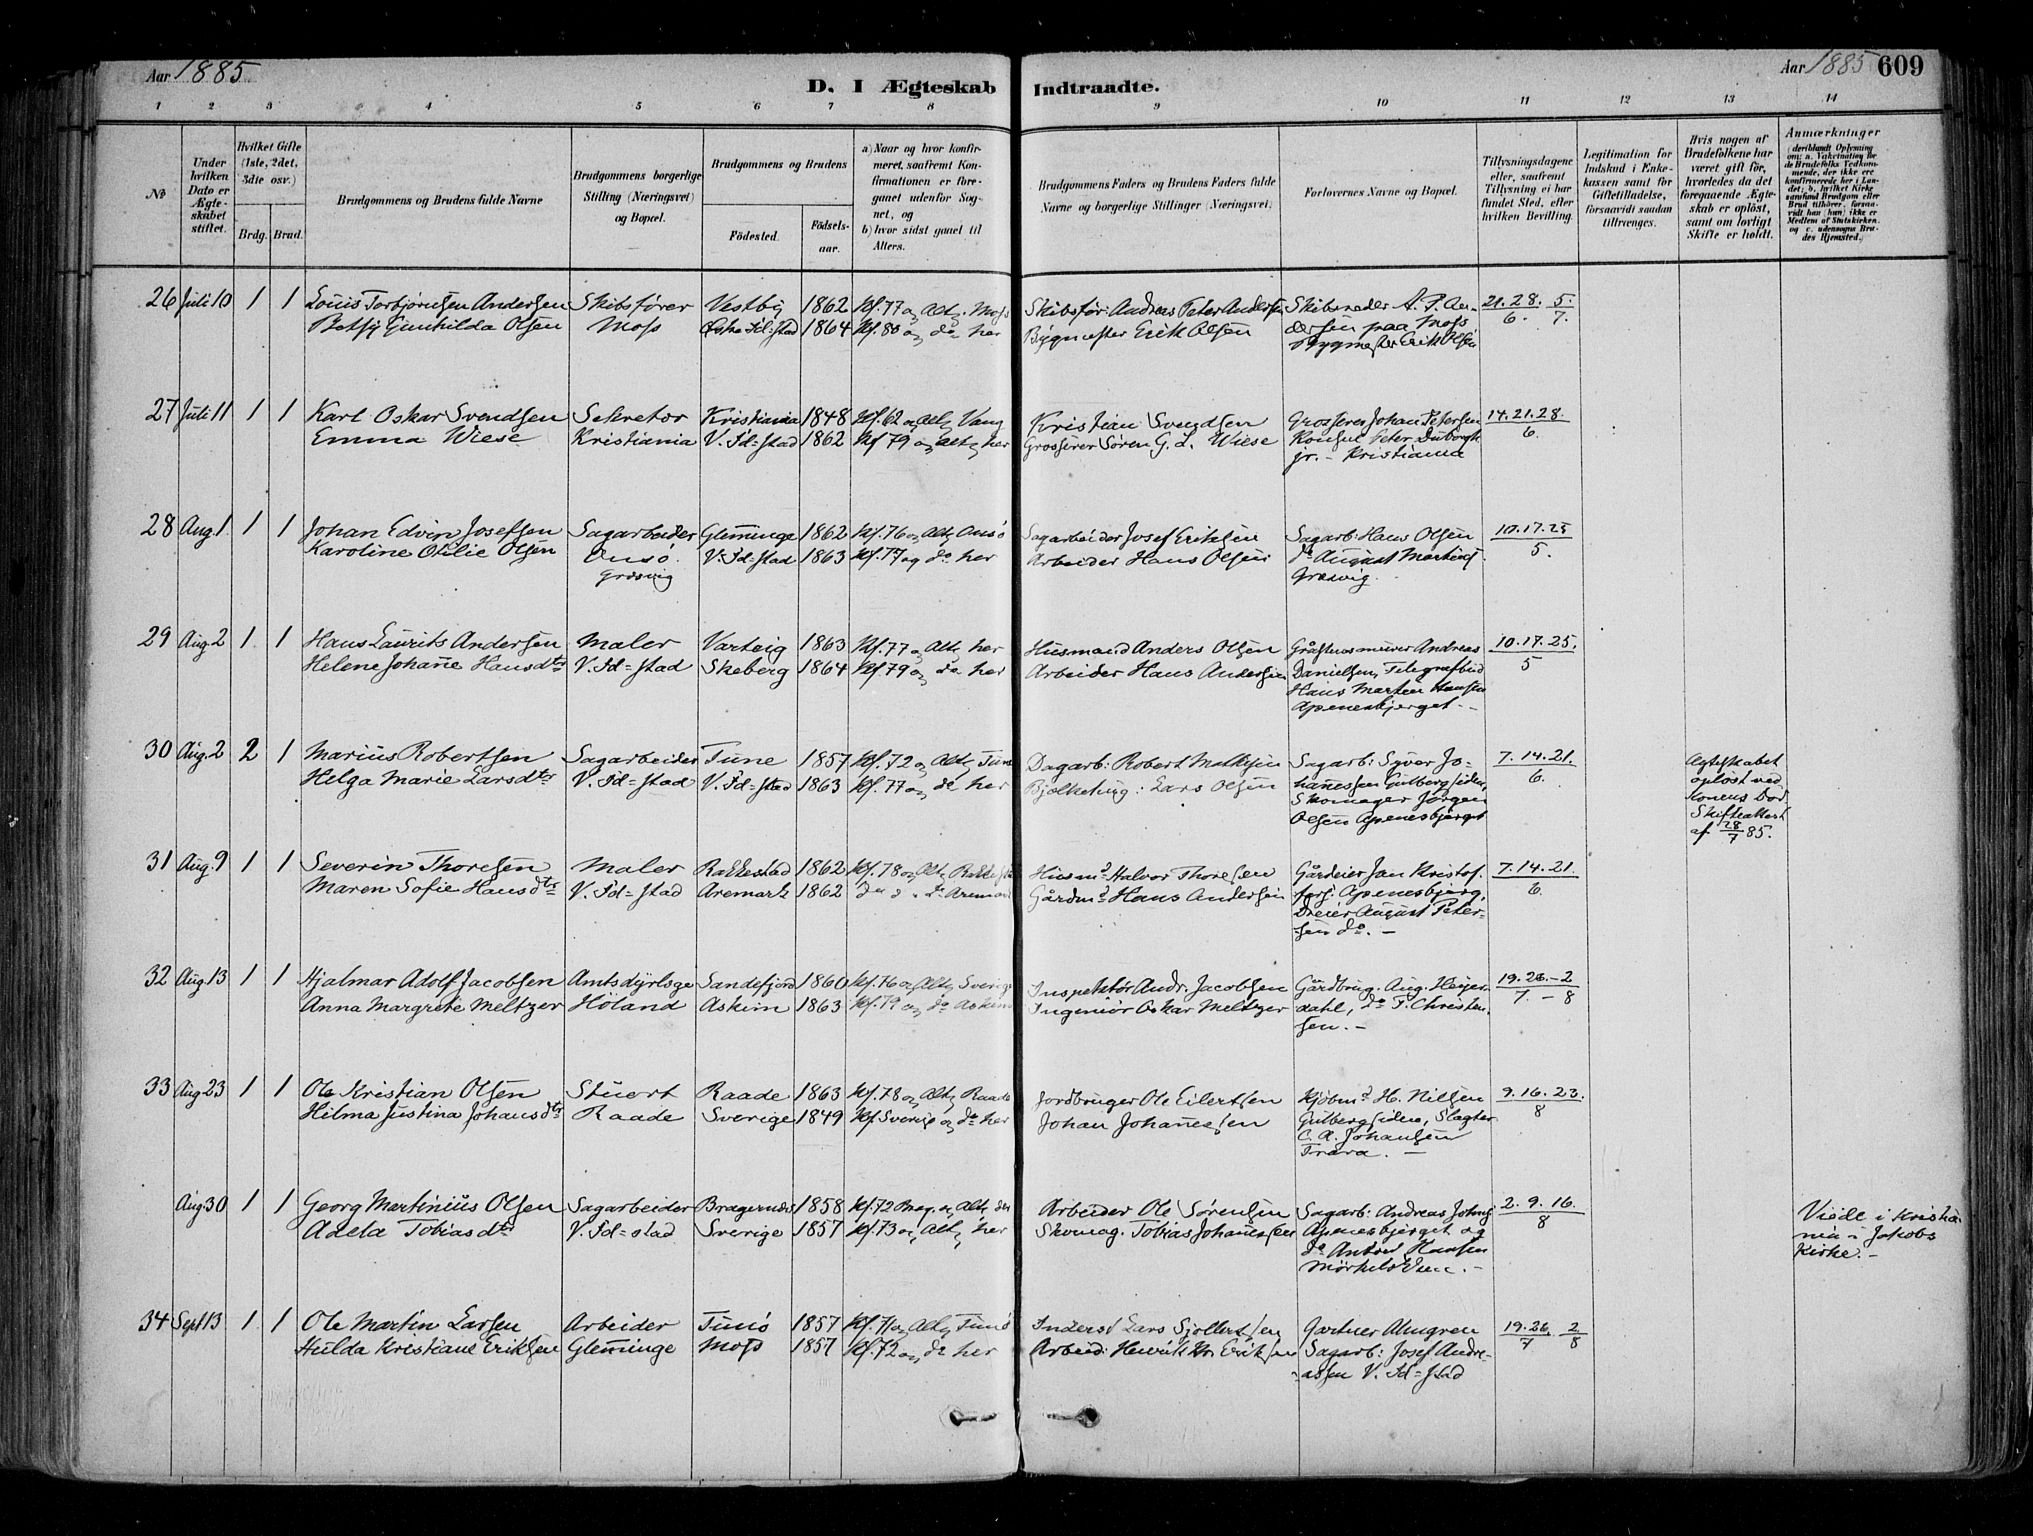 Aar 1885
D. I Ægteskab Indtraadte.
Aar 1885 609
1 2 3 4 5 6 7 8 9 10 11 12 13 14
No
Under hvilken Dato er Ægteskabet stiftet.
Hvilket Gifte (1ste, 2det, 3die osv.)
Brdg. Brud.
Brudgommens og Brudens fulde Navne
Brudgommens borgerlige Stilling (Næringsvei) og Bopæl.
Brudgommens og Brudens
Fødested. Fødsels-aar.
a) Naar og hvor konfirmeret, saafremt Konfirmationen er foregaaet udenfor Sognet, og
b) hvor sidst gaaet til Alters.
Brudgommens Faders og Brudens Faders fulde Navne og borgerlige Stillinger (Næringsvei)
Forlovernes Navne og Bopæl.
Tillysningsdagene eller, saafremt Tillysning ei har fundet Sted, efter hvilken Bevilling.
Legitimation for Indskud i Enkekassen samt for Giftetilladelse, forsaavidt saadan tiltrænges.
Hvis nogen af Brudefolkene har været gift før, hvorledes da det foregaaende Ægteskab er opløst, samt om lovligt Skifte er holdt.
Anmærkninger (deriblandt Oplysning om: a. Vakcination for de Brudefolks Vedkommende, der ikke ere konfirmerede her i Landet; b. hvilket Kirkesamfund Brudgom eller Brud tilhører, forsaavidt han (hun) ikke er Medlem af Statskirken, og c. udensogns Brudes Hjemsted.)
26 Juli 10 1 1 Louis Torbjørnsen Andersen Skibsfører Vestby 1862 Kf. 77 og Alt. Moss Skibsfør: Andreas Peter Andersen Skibsreder A. P. An- 21. 28. 5.
Betsy Gunhilda Olsen Moss Østre Fd=stad 1864 Kf. 80 og do her Bygmester Erik Olsen dersen paa Moss, 6. 7.
Bygmester Erik Olsen
27 Juli 11 1 1 Karl Oskar Svendsen Sekretær Kristiania 1848 Kf. 62 og Alt. Vang Kristian Svendsen Grosserer Johan Petersen 14. 21. 28.
Emma Wiese Kristiania V. Fd=stad 1862 Kf 79 og Alt. her Grosserer Søren G. L. Wiese Konsul Peter Duborgh 6.
jr. - Kristiania
28 Aug. 1 1 1 Johan Edvin Josefsen Sagarbeider Glemminge 1862 Kf. 76 og Alt. Onsø Sagarbeider Josef Eriksen Sagarb: Hans Olsen 10. 17. 25
Karoline Otilie Olsen Onsø. V. Fd=stad 1863 Kf. 77 og do her Arbeider Hans Olsen do August Martins 5.
Græsvig Græsvig.
29 Aug. 2 1 1 Hans Laurits Andersen Maler Varteig 1863 Kf. 77 og Alt. her Husmand Anders Olsen Gråstensmurer Andreas 10. 17. 25.
Helene Johanne Hansdtr V. Fd=stad Skeberg 1864 Kf. 79 og do her Arbeider Hans Andersen Danielsen, Telegrafbud 5
Hans Martin Hansen
Apenesbjerget. -
30 Aug. 2 2 1 Marius Robertsen Sagarbeider Tune 1857 Kf. 72 og Alt. Tune Dagarb: Robert Mathisen Sagarb: Syver Jo- 7. 14. 21. Ægteskabet
Helga Marie Larsdtr V. Fd=stad V. Fd=stad 1863 Kf. 77 og do her Bjelketing: Lars Olsen hanessen Gulbergsiden, 6. opløst ved
Skomager Jørgen Konens Død
Olsen Apenesbjerget Skifteattest
af 28/7 85.
31 Aug. 9 1 1 Severin Thoresen Maler Rakkestad 1862 Kf. 78 og Alt. Rakkestad Husmd Halvor Thoresen Gårdeier Jan Kristof- 7. 14. 21.
Maren Sofie Hansdtr V. Fd=stad Aremark 1862 do do Aremark Gårdmd Hans Andersen fers: Apenesbjerg, 6.
Dreier August Peter-
sen do. -
32 Aug 13 1 1 Hjalmar Adolf Jacobsen Amtsdyrlæge Sandefjord 1860 Kf. 76 og Alt. Sverige Inspektør Andr. Jacobsen Gårdbrug. Aug. Heyer- 19. 26. - 2
Anna Margrete Meltzer Høland Askim 1863 Kf. 79 og do Askim Ingeniør Oskar Meltzer dahl, do T. Christen- 7. - 8
sen. -
33 Aug 23 1 1 Ole Kristian Olsen Stuert Raade 1863 Kf. 78 og Alt. Raade Jordbruger Ole Eilertsen Kjøbmd H. Nilsen 9. 16. 23.
Hilma Justina Johansdtr Raade Sverige 1849 Kf Sverige og do her Johan Johannessen Gulbergsiden, Slagter 8
C. A. Johansen
Trara. -
Aug 30 1 1 Georg Martinius Olsen Sagarbeider Bragernæs 1858 Kf. 72 Brag. og Alt. der Arbeider Ole Sørensen Sagarb: Andreas Johns 2. 9. 16. Viede i Kristia-
Adela Tobiasdtr V. Fd=stad Sverige 1857 Kf. 73 og Alt. her Skomag. Tobias Johannessen Apenesbjerget og 8 nia i Jakobs
do Anton Hansen Kirke. -
34 Sept 13 1 1 Ole Martin Larsen Arbeider Tunø 1857 Kf. 71 og Alt. Tunø Inderst Lars Sjollertsen Gartner Almgren 19. 26. 2
Hulda Kristiane Eriksen Glemminge Moss 1857 Kf. 72 og do her Arbeid: Henrik Kr. Eriksen Sagarb: Josef Andre- 7 8
assen V. Fd=stad